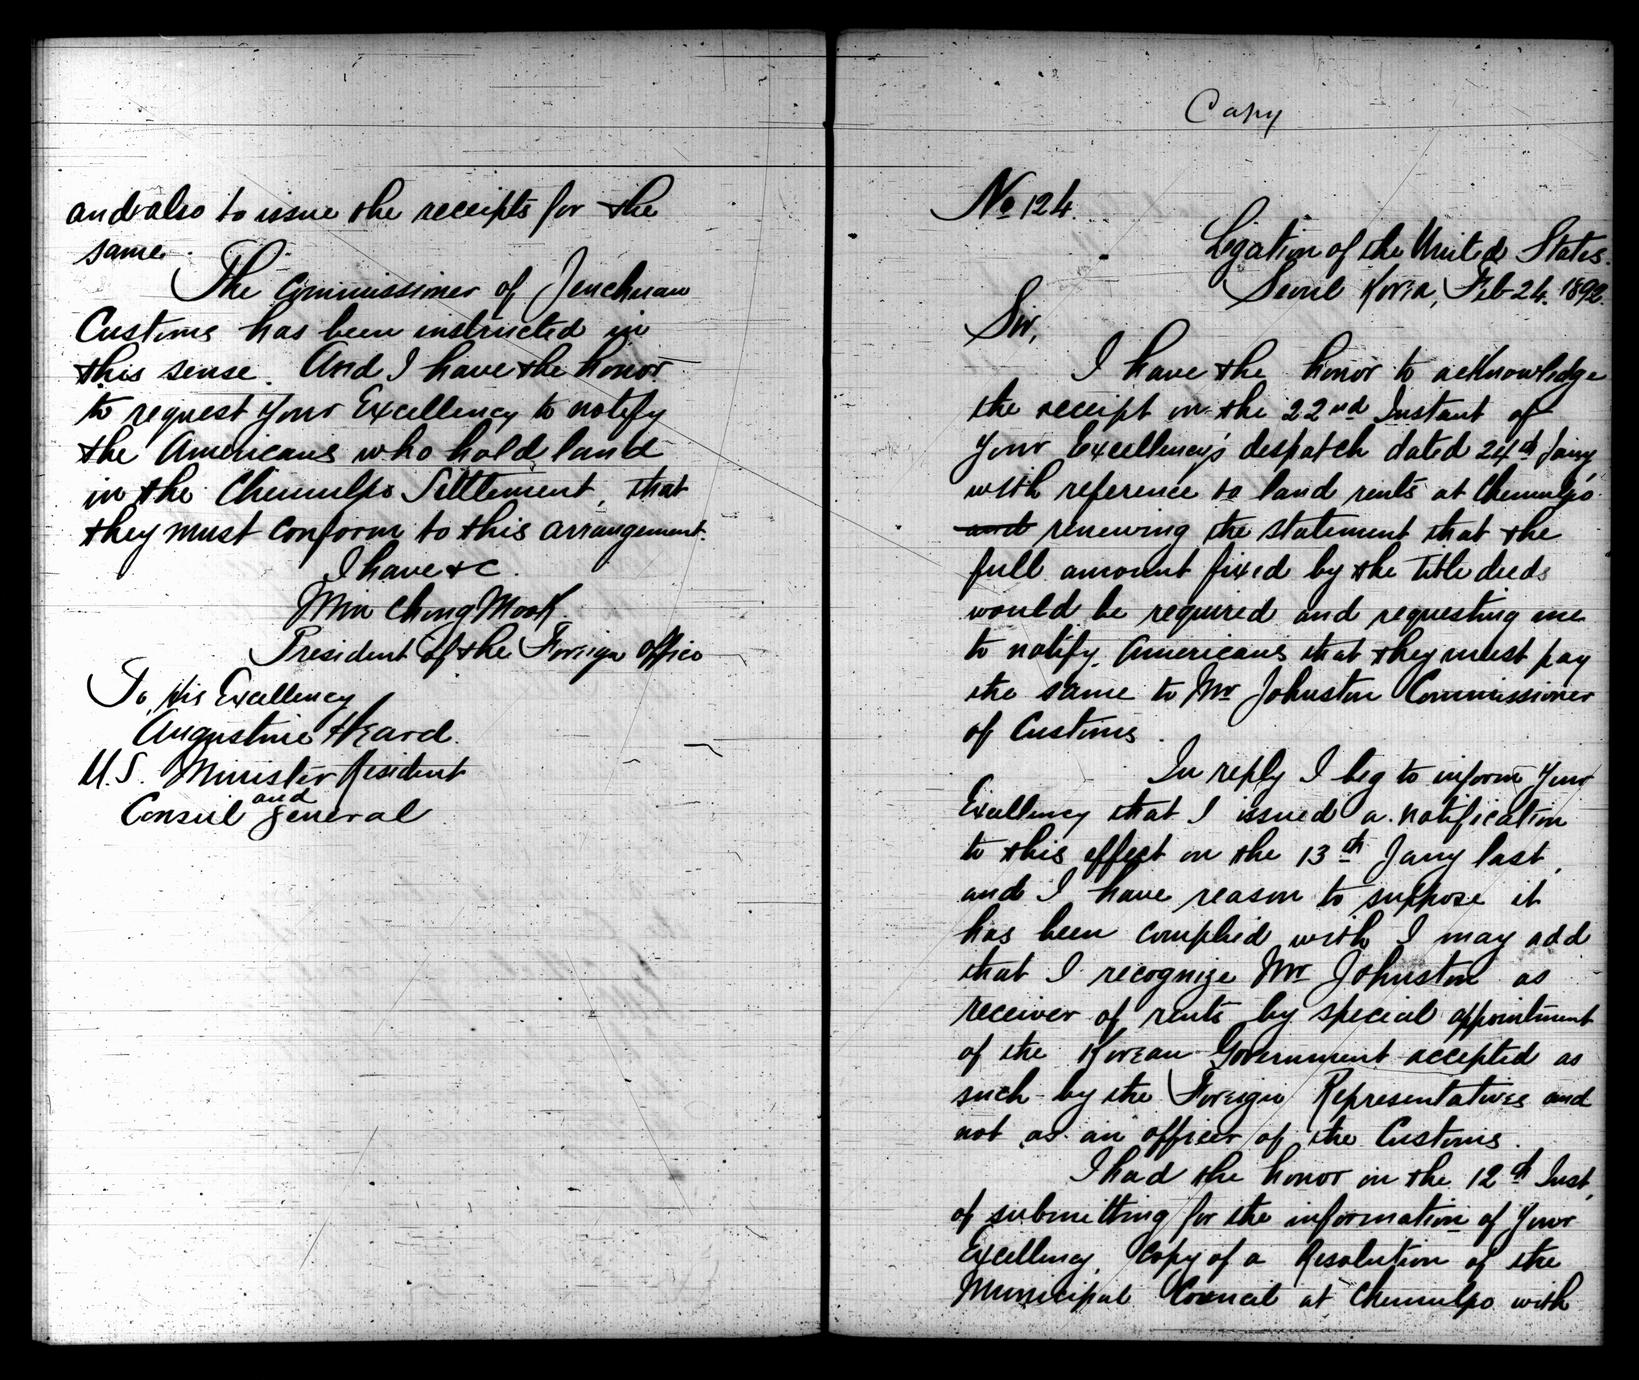 and also to issue the receipts for the
same.
The Commissioner of Jenchuan
Customs has been instructed in
this sense. And I have the honor
to request Your Excellency to notify
the Americans who hold land
in the Chemulpo Settlement, that
they must conform to this arrangement.
I have &c.
Min Chong Mook
President of the Foreign Office
To, His Excellency
Augustine Heard.
U.S. Minister Resident
and
Consul General
Copy
No 124.
Legation of the United States.
Seoul Korea, Feb 24. 1892
Sir,
I have the honor to acknowledge
the receipt on the 22nd Instant of
Your Excellency's despatch dated 24th Jany,
with reference to land rents at Chemulpo
and renewing the statement that the
full amount fixed by the title deeds
would be required and requesting me
to notify Americans that they must pay
the same to Mr Johnston Commissioner
of Customs.
In reply I beg to inform Your
Excellency that I issued a notification
to this effect on the 13th Jany last,
and I have reason to suppose it
has been complied with I may add
that I recognize Mr Johnston as
receiver of rents by special appointment
of the Korean Government accepted as
such by the Foreign Representatives and
not as an officer of the Customs.
I had the honor on the 12th Inst,
of submitting for the information of Your
Excellency, Copy of a Resolution of the
Municipal Council at Chemulpo with